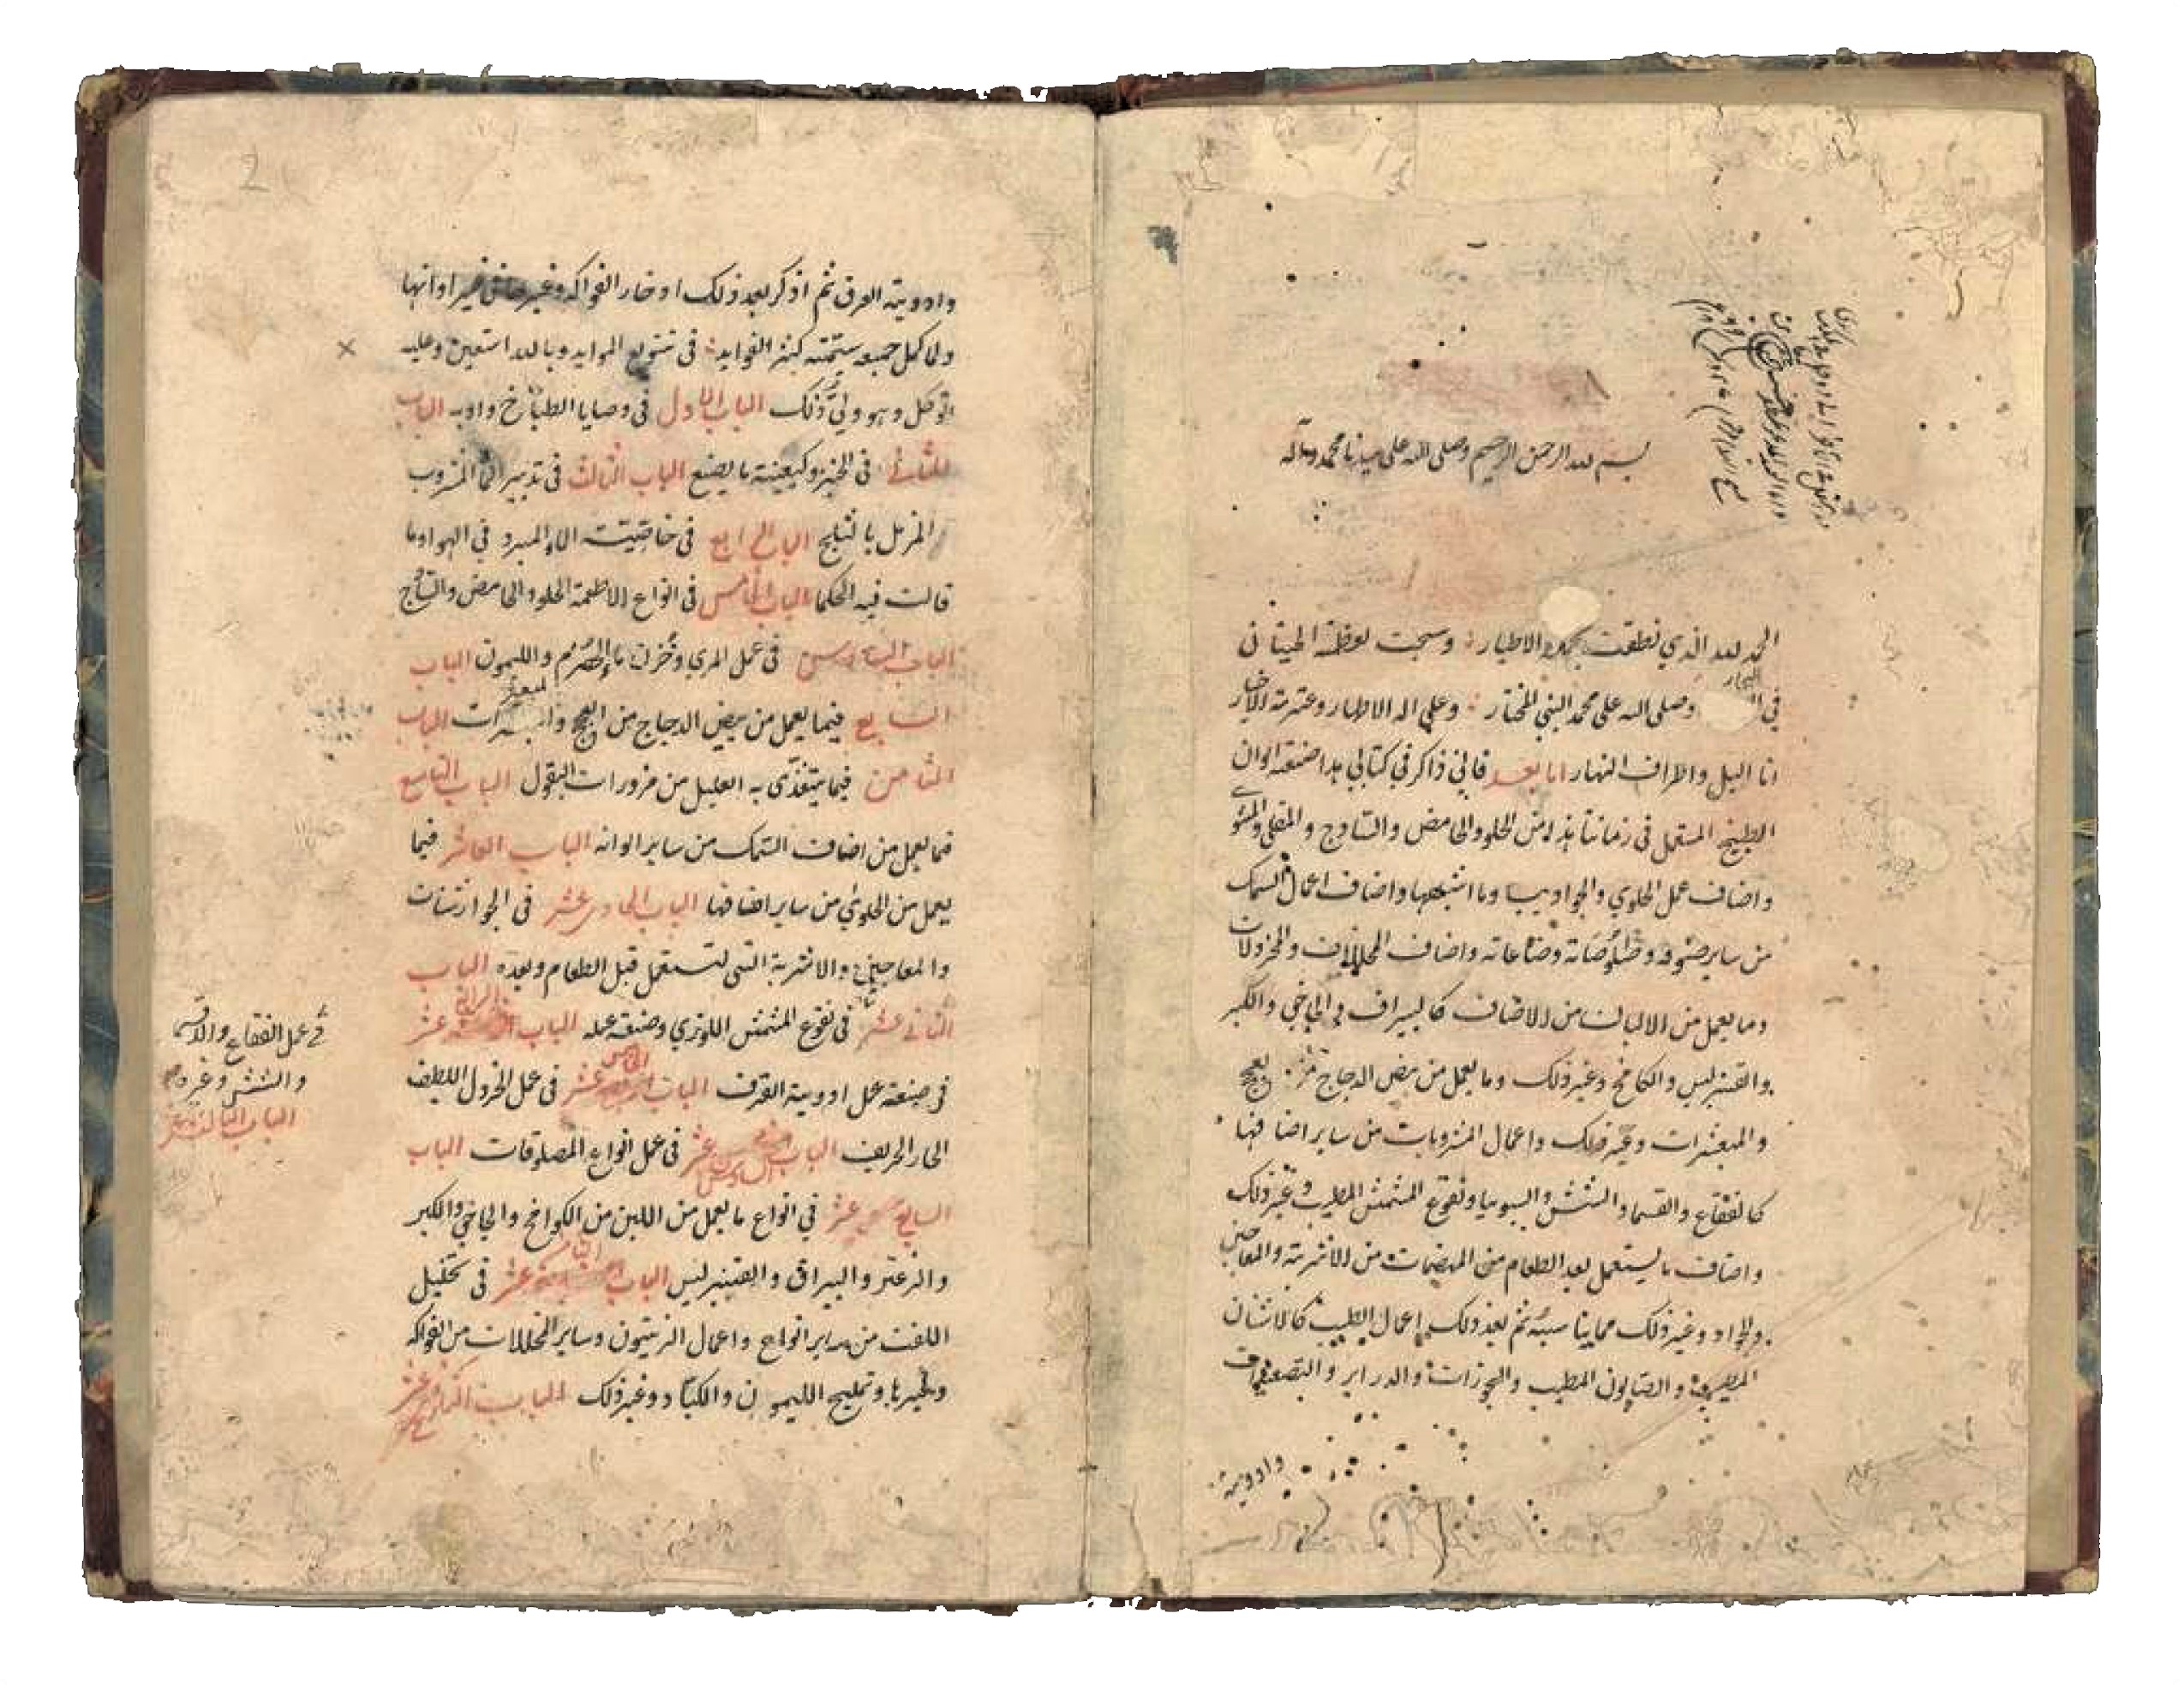 بسم الله الرحمن الرحيم وصلى الله على سيدنا محمد وآله
الحمد لله الذي نطقت بحمده الاطيار وسبحت لعظمته الحيتان
في البحار وصلى الله على محمد النبي المختار وعلى اله الاطهار وعترته الاخيار
انا اليل واطراف النهار اما بعد فاني ذاكر في كتابي هذا صنعة الوان
الطبيخ المستعمل في زماننا هذا من الحلو والحامض والساذج والمقلي والمشوي
واصناف عمل الحلوي والجواديب وما اشبهها واصناف اعمال السمك
من ساير صنوفه وصناعاته واصناف المخللات والمخردلات
وما يعمل من الالبان من الاصناف كالبيراف والجاجخي والكبر
والقنبريس والكامخ وغير ذلك وما يعمل من بيض الدجاج من العجج
والمبعثرات وغير ذلك واعمال المشروبات من ساير اصنافها
كالفقاع والقسما والششش والسوبيا ونقوع المشمش المطيب وغير ذلك
واصناف ما يستعمل بعد الطعام من المهضمات من الاشربة والمعاجين
والمواد وغير ذلك مما يناسبه ثم بعد ذلك اعمال الطيب كالاشنان
والصابون المطيب والبخورات والدراير والتصعيدات
وادوية
وادوية العرق ثم اذكر بعد ذلك ادخار الفواكه وغيرها في غير اوانها
ولما كمل جميعه سميته كنز الفوايد في تنويع الموايد وبالله استعين وعليه
اتوكل وهو ولي ذلك الباب الاول في وصايا الطباخ وادبه الباب
الثاني في الخبز وكيفية ما يصنع الباب الثالث في تدبير الماء المشروب
المزمل بالثلج الباب الرابع في خاصيته الماء المبرد في الهوا وما
قالت فيه الحكما الباب الخامس في انواع الاطعمة الحلو والحامض والساذج
الباب السادس في عمل المري وخزن ماء الحصرم والليمون الباب
السابع فيما يعمل من بيض الدجاج من العجج والمبعثرات الباب
الثامن فيما يتغذى به العليل من مزورات البقول الباب التاسع
فيما يعمل من اصناف السمك من ساير الوانه الباب العاشر فيما
يعمل من الحلوي من ساير اصنافها الباب الحادي عشر في الجوارشنات
والمعاجين والاشربة التي تستعمل قبل الطعام وبعده الباب
الثاني عشر في نقوع المشمش اللوزي وصنعة عمله الباب الرابع عشر
في عمل الفقاع والاقسما
والششش وغيره
الباب الثالث عشر
في صنعة عمل ادوية القرف الباب الخامس عشر في عمل الخردل اللطيف
الحار الحريف الباب السادس عشر في عمل انواع المصلوقات الباب
السابع عشر في انواع ما يعمل من اللبن من الكوامخ والجاجخي والكبر
والزعتر والبيراق والقنبريس الباب الثامن عشر في تخليل
اللفت من ساير انواعه واعمال الزيتون وساير المخللات من الفواكه
وغيرها وتمليح الليمون والكباد وغير ذلك الباب التاسع عشر